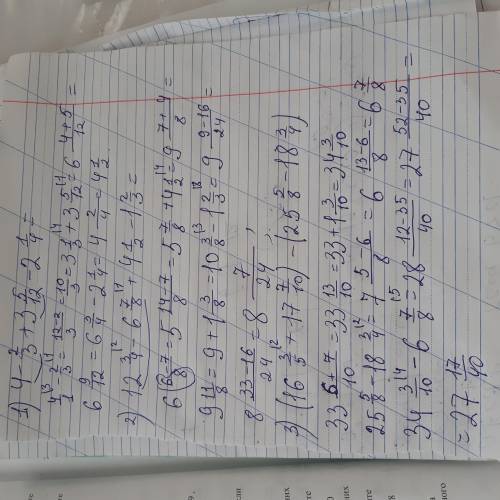 1) 4 - 2/3 + 3 5/12 - 2 1/4 =
4/1 - 2/3 = 12-2/3 = 10/3 = 3 1/3 + 3 5/12 = 6 4+5/12 =
6 9/12 = 6 3/4 - 2 1/4 = 4 2/4 = 4 1/2
2) 12 3/4 - 6 7/8 + 4 1/2 - 1 2/3 =
6 6-7/8 = 5 14-7/8 = 5 7/8 + 4 1/2 = 9 7+4/8 =
9 11/8 = 9 + 1 3/8 = 10 3/8 - 1 2/3 = 9 9-16/24 =
8 33-16/24 = 8 7/24
3) (16 3/5 + 17 7/10) - (25 5/8 - 18 3/4)
33 6+7/10 = 33 13/10 = 33 + 1 3/10 = 34 3/10
25 5/8 - 18 3/4 = 7 5-6/8 = 6 13-6/8 = 6 7/8
34 3/10 - 6 7/8 = 28 12-35/40 = 27 52-35/40 =
= 27 17/40